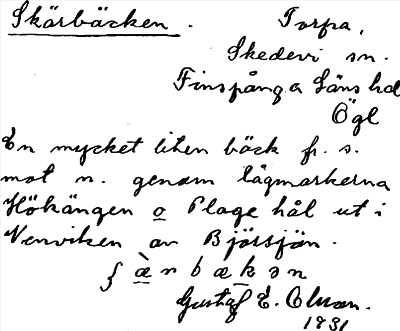 Skärbäcken. Torpa,
Skedevi sn.
Finspånga Läns hd
Ögl
En mycket liten bäck fr. s.
mot n. genom lågmarkerna
Hökängen o Plage hål ut i
Venviken av Björsjön.
Gustaf E. Olsson.
1931